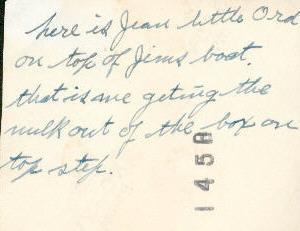 here is Jean little Ord
on top of Jims boat.
that is me geting the
milk out of the box on
top step.
1458